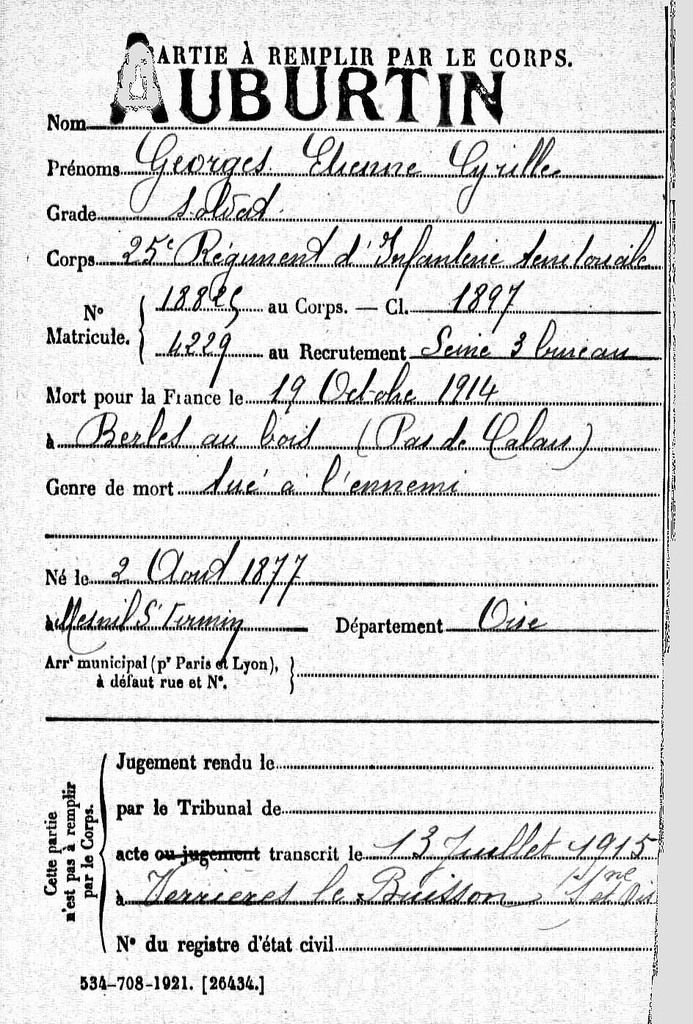 PARTIE À REMPLIR PAR LE CORPS.
Nom AUBURTIN
Prénoms Georges Etienne Cyrille
Grade soldat
Corps 25e Régiment d'Infanterie territoriale
N° Matricule. { 18825 au Corps. — Cl. 1897
4229 au Recrutement Seine 3 bureau
Mort pour la France le 19 Octobre 1914
à Berles au bois (Pas de Calais)
Genre de mort tué à l'ennemi
Né le 2 Aout 1877
à Mesnil St Firmin Département Oise
Arrt municipal (pr Paris et Lyon), à défaut rue et N°. }
Cette partie n'est pas à remplir par le Corps.
Jugement rendu le
par le Tribunal de
acte ou jugement transcrit le 13 Juillet 1915
à Verrières le Buisson Sne et Ois
N° du registre d'état civil
534-708-1921. [26434.]